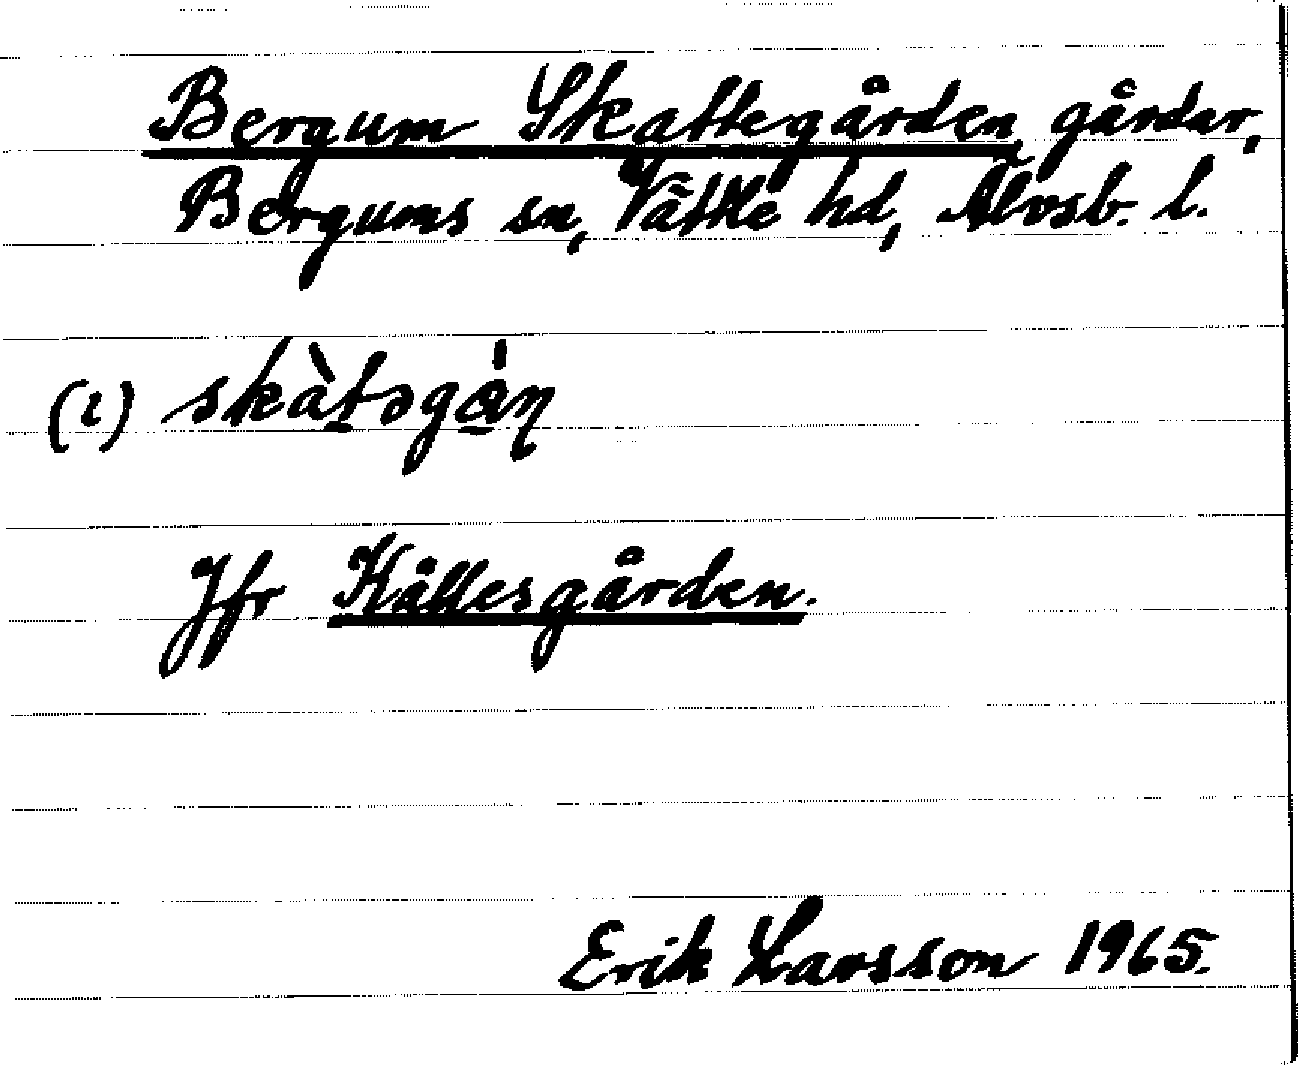 Bergum Skattegården gårdar,
Bergums sn, Vättle hd, Älvsb. l.
(i) skàt̠əgå̠̀ṇ
Jfr Kållesgården.
Erik Larsson 1965.